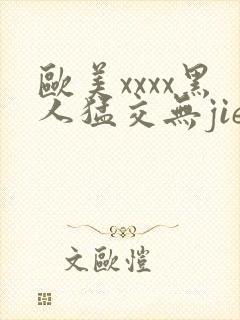 歐美xxxx黑
人猛交無jie
文歐愷